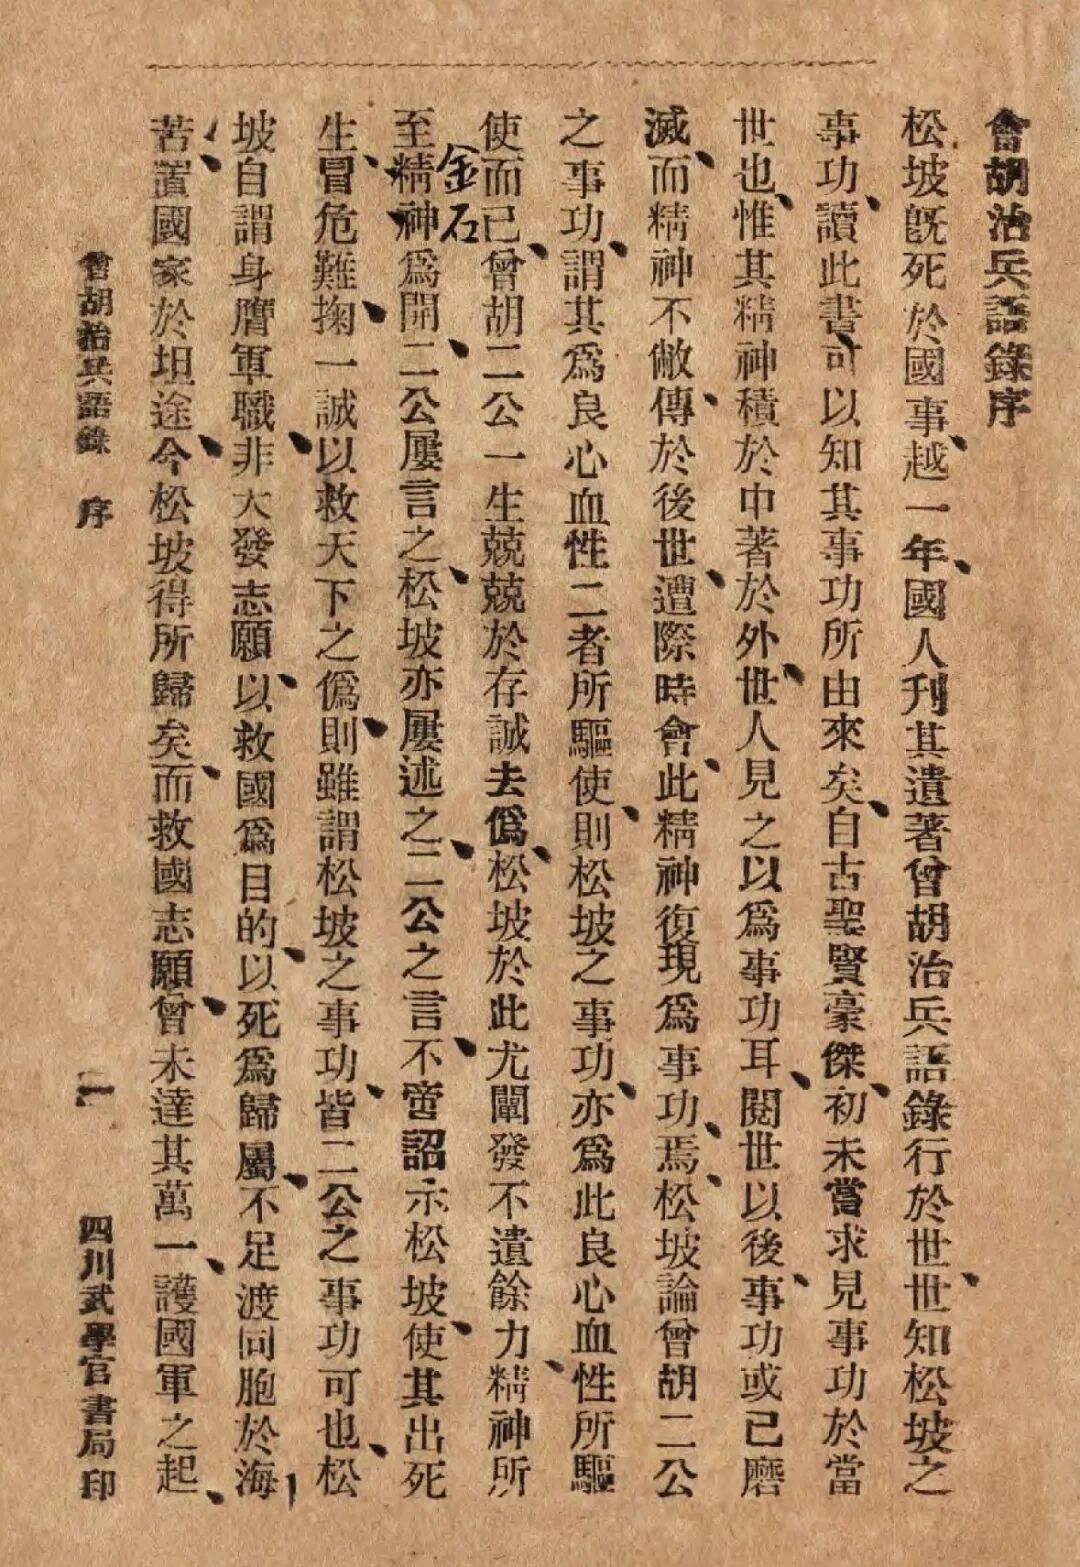 曾胡治兵語錄序
松坡旣死於國事、越一年、國人刊其遺著曾胡治兵語錄行於世、世知松坡之
事功、讀此書、可以知其事功所由來矣、自古聖賢豪傑、初未嘗求見事功於當
世也、惟其精神積於中著於外、世人見之以爲事功耳、閱世以後、事功或已磨
滅、而精神不敝、傳於後世、遭際時會、此精神復現爲事功、焉、松坡論曾胡二公
之事功、謂其爲良心血性二者所驅使、則松坡之事功、亦爲此良心血性所驅
使而已、曾胡二公一生兢兢於存誠去僞、松坡於此尤闡發不遺餘力、精神所
至、金石爲開、二公屢言之、松坡亦屢述之、二公之言、不啻詔示松坡、使其出死
生、冒危難、掬一誠、以救天下之僞、則雖謂松坡之事功、皆二公之事功可也、松
坡自謂身膺軍職、非大發志願、以救國爲目的、以死爲歸屬、不足渡同胞於海
苦、置國家於坦途、今松坡得所歸矣、而救國志願、曾未達其萬一、護國軍之起、
曾胡治兵語錄 序 一 四川武學官書局印